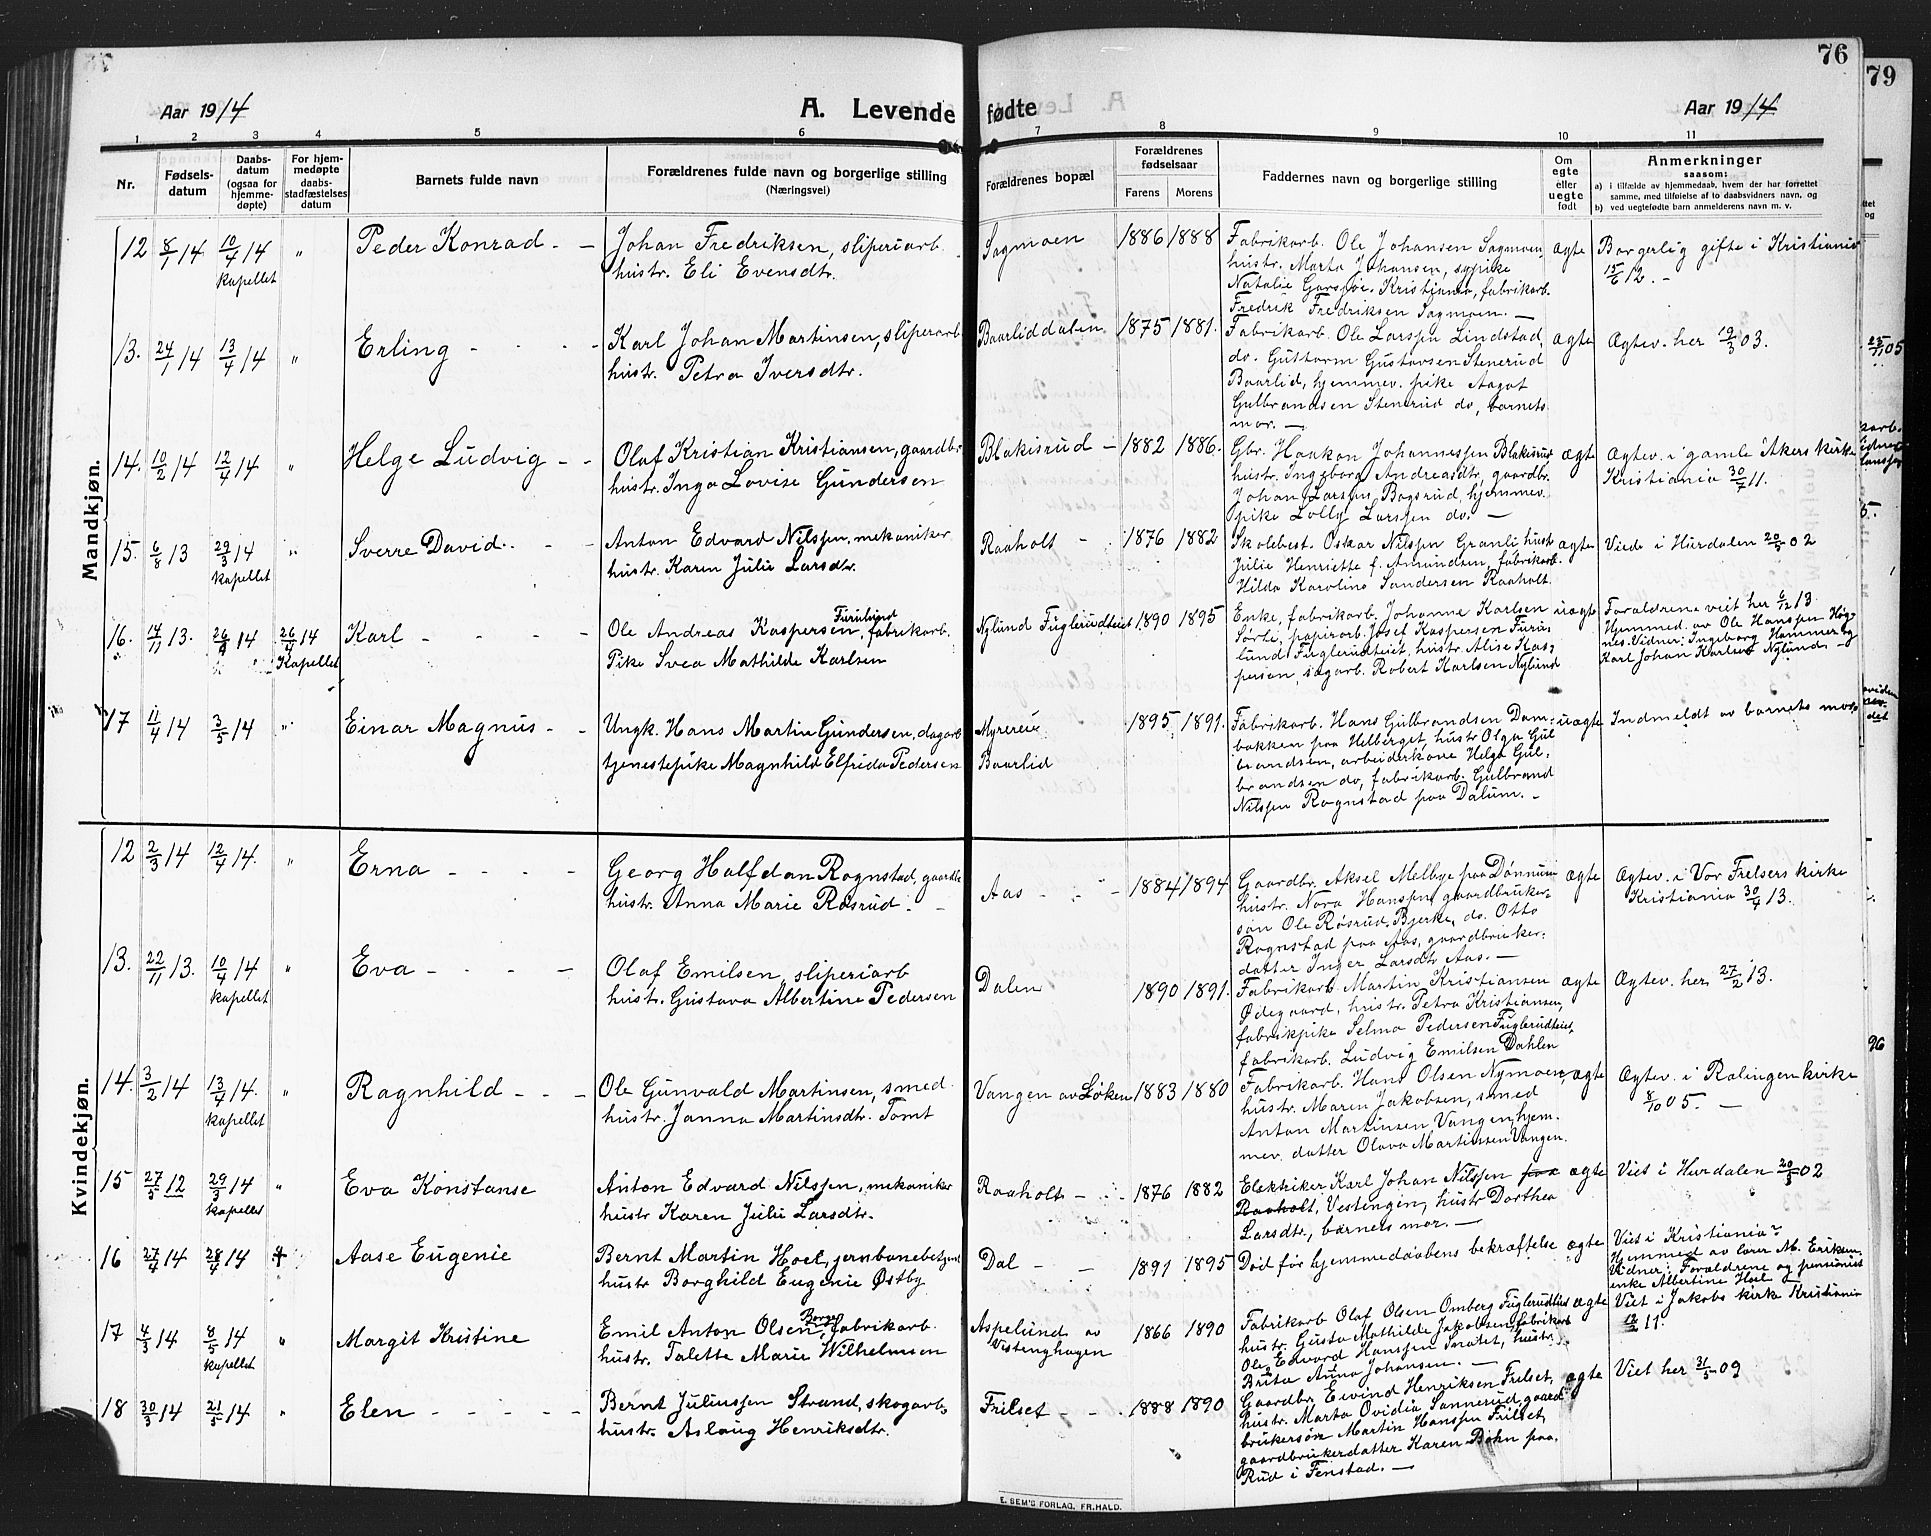 76
79
Aar 1914
A. Levende fødte
Aar 1914
1 2 3 4 5 6 7 8 9 10 11
Nr.
Fødsels-
datum
Daabs-
datum
(ogsaa for
hjemme-
døpte)
For hjem-
medøpte
daabs-
stadfæstelses
datum
Barnets fulde navn
Forældrenes fulde navn og borgerlige stilling
(Næringsvei)
Forældrenes bopæl
Forældrenes
fødselsaar
Farens Morens
Faddernes navn og borgerlige stilling
Om
egte
eller
uegte
født
Anmerkninger
saasom:
a) i tilfælde av hjemmedaab, hvem der har forrettet
samme, med tilføielse af to daabsvidners navn, og
b) ved uegtefødte barn anmelderens navn m. v.
Mandkjøn.
12 8/1 14 10/4 14 "
kapellet
Peder Konrad - -
Johan Fredriksen, sliperiarb.
hustr. Eli Evensdtr.
Sagmoen
1886 1888
Fabrikarb. Ole Johansen Sagmoen,
hustr. Marta Johansen, sypike
Natalie Garsjøe, Kristiania, fabrikarb.
Fredrik Fredriksen Sagmoen. —
ægte
Borgerlig gifte i Kristiania
15/6 12. -
13. 24/1 14 13/4 14 "
Erling - - - -
Karl Johan Martinsen, sliperiarb
hustr. Petra Iversdtr.
Baarliddalen
1875 1881.
Fabrikarb. Ole Larsen Lindstad,
do. Guttorm Gustavsen Stenerud
Baarlid, hjemmev. pike Aagot
Gulbrandsen Stenerud do, barnets
mor. —
ægte
Ægtev. her 19/3 03.
14. 10/2 14 12/4 14 "
Helge Ludvig - -
Olaf Kristian Kristiansen, gaardbr.
hustr. Inga Lovise Gundersen
Blakisrud -
1882 1886.
Gbr. Haakon Johannessen Blakisrud
hustr. Ingeborg Andreasdtr, gaardbr.
Johan Larsen Bagsrud, hjemmev.
pike Lolly Larsen do. —
ægte
Ægtev. i gamle Akers kirke
Kristiania 30/7 11.
15. 6/8 13 29/3 14 "
kapellet
Sverre David. - -
Anton Edvard Nilssen, mekaniker
hustr. Karen Julie Larsdtr.
Raaholt - -
1876 1882
Skolebest. Oskar Nilssen Granli hustr
Julie Henriette f. Amundsen, fabrikarb.
Hilda Karoline Sandersen Raaholt.
ægte
Viede i Hurdalen 20/3 02
16. 14/11 13. 26/4 14 26/4 14
Kapellet
Karl - - - -
Furulund
Ole Andreas Kaspersen, fabrikarb.
Pike Svea Mathilde Karlsen
Nylund Fuglerudteiet
1890 1895
Enke, fabrikarb. Johanne Karlsen
Sørli, papirarb. Josef Kaspersen Furu-
lund Fuglerudteiet, hustr. Alise Kas-
persen, sagarb. Robert Karlsen Nylund
uægte
Forældrene viet her 6/12 13.
Hjemmed. av Ole Hanssen Høg-
nes. Vidner: Ingeborg Hammer og
Karl Johan Karlsen Nylund -
17 11/4 14 3/5 14 "
Einar Magnus - -
Ungk. Hans Martin Gundersen, dagarb
tjenestepike Magnhild Elfrida Pedersen
Myreeie
Baarlid
1895 1891.
Fabrikarb. Hans Gulbrandsen Dam-
bakken paa Helberget, hustr Olga Gul
brandsen, arbeiderkone Helga Gul-
brandsen do, fabrikarb. Gulbrand
Nilssen Rognstad paa Dalum. -
uægte
Indmeldt av barnets mor.
Kvindekjøn.
12 2/3 14 12/4 14. "
Erna - - - -
Georg Halfdan Rognstad, gaardbr
hustr. Anna Marie Røsrud -
Aas - - -
1884 1894
Gaardbr. Aksel Melbye paa Dønnum
hustr. Nora Hanssen, gaardbruker-
søn Ole Røsrud Bjerke, do. Otto
Rognstad paa Aas, gaardbruker-
datter Inger Larsdtr Aas. —
ægte
Ægtev. i Vor Frelsers kirke
Kristiania 30/4 13.
13. 22/11 13. 10/4 14 "
kapellet
Eva - - - -
Olaf Emilsen, sliperiarb
hustr. Gustava Albertine Pedersen
Dalen
1890 1891.
Fabrikarb. Martin Kristiansen
Ødegaard, hustr. Petra Kristiansen,
fabrikpike Selma Pedersen Fuglerudteiet,
fabrikarb. Ludvig Emilsen Dahlen
ægte
Ægtev. her 27/2 13.
14. 3/2 14 13/4 14. "
kapellet
Ragnhild - - -
Ole Gunvald Martinsen, smed.
hustr. Janna Martinsdtr. Tomt
Vangen av Løken
1883 1880
Fabrikarb. Hans Olsen Nymoen,
hustr. Maren Jakobsen, smed
Anton Martinsen Vangen, hjem.
mev. datter Olava Martinssen Vangen.
ægte
Ægtev. i Rælingen kirke
8/10 05. —
15 27/5 12 29/3 14 "
kapellet
Eva Konstanse
Anton Edvard Nilssen, mekaniker
hustr Karen Julie Larsdtr.
Raaholt - - -
1876 1882
Elektriker Karl Johan Nilssen paa
Raaholt, Vestengen, hustr Dorthea
Larsdtr, barnets mor. —
ægte
Viet i Hurdalen 20/3 02
16 27/4 14 28/4 14 +
Aase Eugenie
Bernt Martin Hoel, jernbanebetjent
hustr Borghild Eugenie Østby
Dal - -
1891 1895
Død før hjemmedaabens bekræftelse
ægte
Viet i Kristiania?
Hjemmed av lærer M. Eriksen
Vidner: Forældrene og pensionist
enke Albertine Hoel —
17 4/3 14 8/5 14 "
kapellet
Margit Kristine
Borge
Emil Anton Olsen, fabrikarb.
hustr. Talette Marie Wilhelmsen
Aspelund av
Vestenghagen
1866 1890
Fabrikarb Olaf Olsen Omberg Fuglerudteiet
hustr. Gusta Mathilde Jakobsen, fabrikarb
Ole Edvard Hanssen Snatet, hustr.
Brita Anna Johansen. —
ægte
Viet i Jakobs kirke Kristiania
12/2 11.
18 30/3 14 21/5 14 "
Elen - - - -
Bernt Juliussen Strand, skogarb.
hustr. Aslaug Henriksdtr.
Frilset - -
1888 1890
Gaardbr. Eivind Henriksen Frilset,
hustr. Marta Ovidia Sannerud, gaard-
brukersøn Martin Hanssen Frilset,
gaardbrukerdatter Karen Bøhn paa
Rud i Fenstad. —
ægte
Viet her 31/5 09
E. SEM'S FORLAG, FR.HALD.